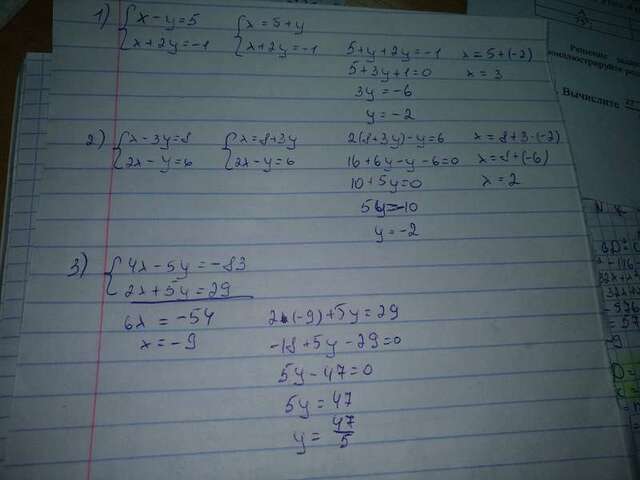 1) { x - y = 5   { x = 5 + y
{ x + 2y = -1   { x + 2y = -1   5 + y + 2y = -1   x = 5 + (-2)
5 + 3y + 1 = 0   x = 3
3y = -6
y = -2
2) { x - 3y = 8   { x = 8 + 3y   2(8 + 3y) - y = 6   x = 8 + 3·(-2)
{ 2x - y = 6   { 2x - y = 6   16 + 6y - y - 6 = 0   x = 8 + (-6)
10 + 5y = 0   x = 2
5y = -10
y = -2
3) { 4x - 5y = -83
{ 2x + 5y = 29
6x = -54   2·(-9) + 5y = 29
x = -9   -18 + 5y - 29 = 0
5y - 47 = 0
5y = 47
y = 47/5
Решение
Вычислите